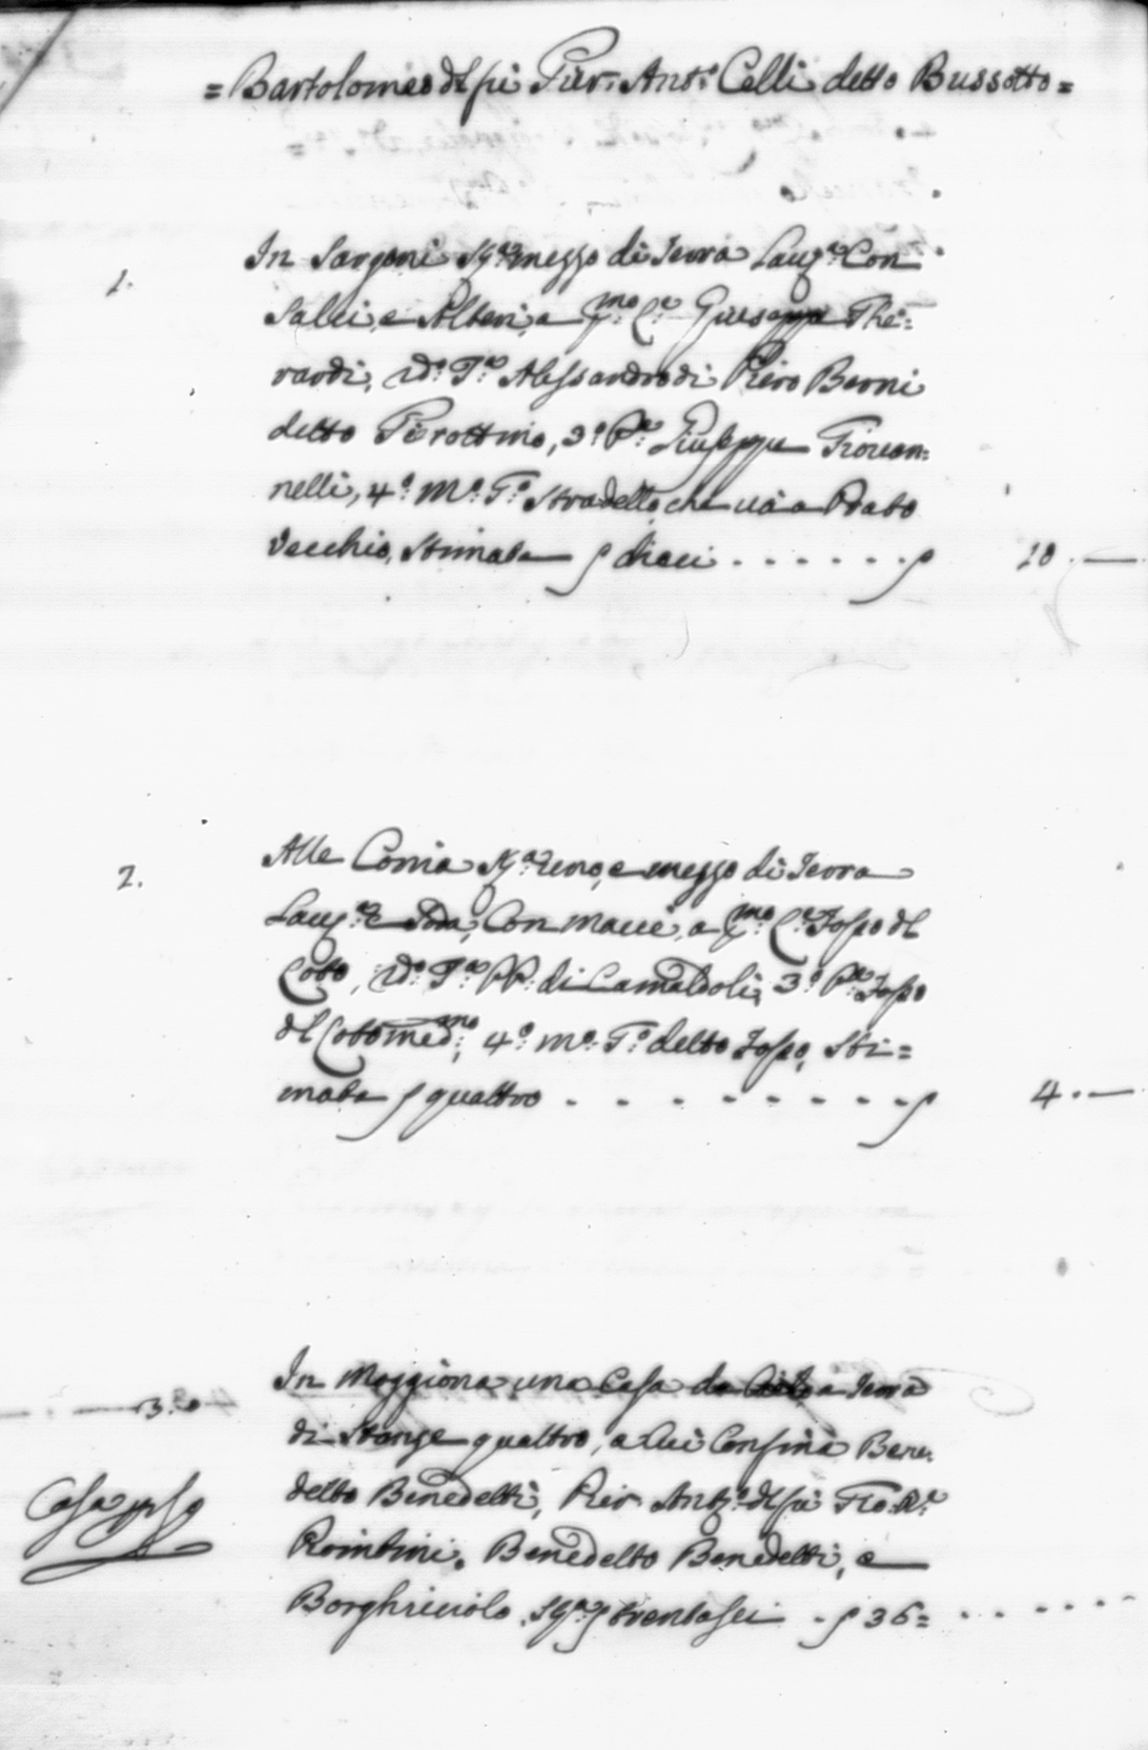 = Bartolomeo dl fù Pier: Ant:o Celli detto Bussotto =
1. In Sargoni Sg:a mezzo di Terra Lau:a Con
Salci, e Alberi, a p:mo C:e Giuseppe Ghe=
rardi, 2do: T:o Alessandro di Piero Berni
detto Pierottino, 3:o P:e Giuseppe Giovan=
nelli, 4:o M:o T:o Stradello che và a Prato
Vecchio, Stimata S dieci . . . . . . S 10. —
2. Alle Conia Sg:a uno, e mezzo di Terra
Lau:a e Soda, Con macie, a p:mo C:e Fosso dl
Coto, 2do: T:o PP. di Camaldoli, 3:o P:e Fosso
dl Coto med:mo, 4:o M:o T:o detto Fosso, Sti=
mata S quattro . . . . . . . . S 4. —
3. In Moggiona una Casa da a Terra
di Stanze quattro, a Cui Confina Bene=
Casa p:so detto Benedetti, Pier Ant:o dl fù Gio: B:a
Benedetto Benedetti, e
Borghicciolo, S trentasei . S 36 = . . . . . .